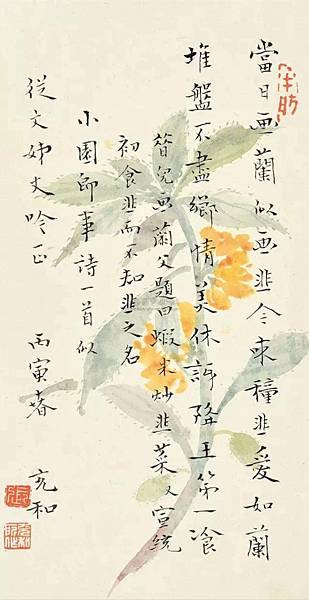 當日画蘭似画韭今来種韭愛如蘭
堆盤不盡鄉情美休訝降王第一飡
児画蘭父題曰蝦米炒韭菜又宣統
初食韭而不知韭之名
小園即事詩一首似
從文姊丈吟正
丙寅春
充和